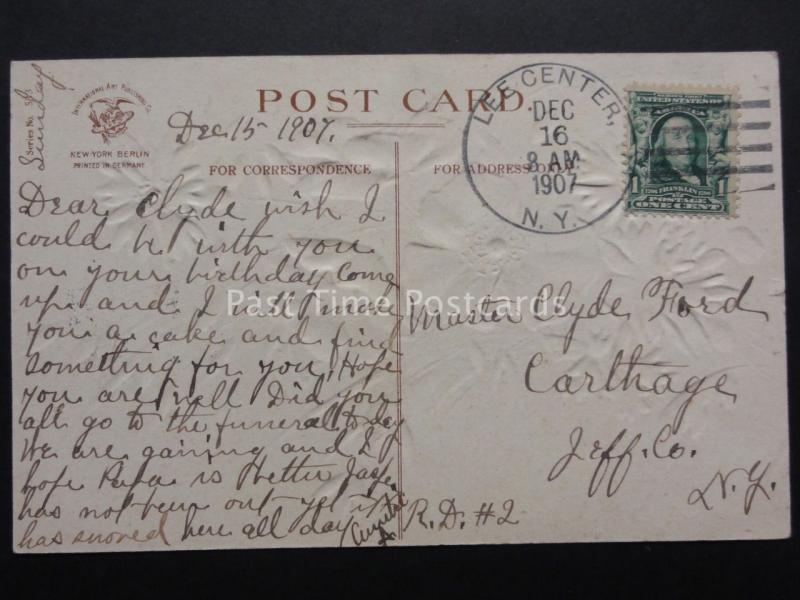 POST CARD
Series No. 515
Sunday
INTERNATIONAL ART PUBLISHING Co.
NEW-YORK BERLIN
PRINTED IN GERMANY
Dec. 15 1907.
FOR CORRESPONDENCE
FOR ADDRESS ONLY
LEE CENTER,
DEC
16
8 AM
1907
N. Y.
UNITED STATES OF AMERICA
FRANKLIN
1 POSTAGE 1
ONE CENT
Dear Clyde wish I
could be with you
on your birthday Come
up and I will make
you a cake and find
something for you, Hope
you are well Did you
all go to the funeral to day
We are gaining and I
hope Papa is better
has not been out yet it
has snowed here all day
Master Clyde Ford
Carthage
Jeff. Co.
N.Y.
R.D. #2
Past Time Postcards